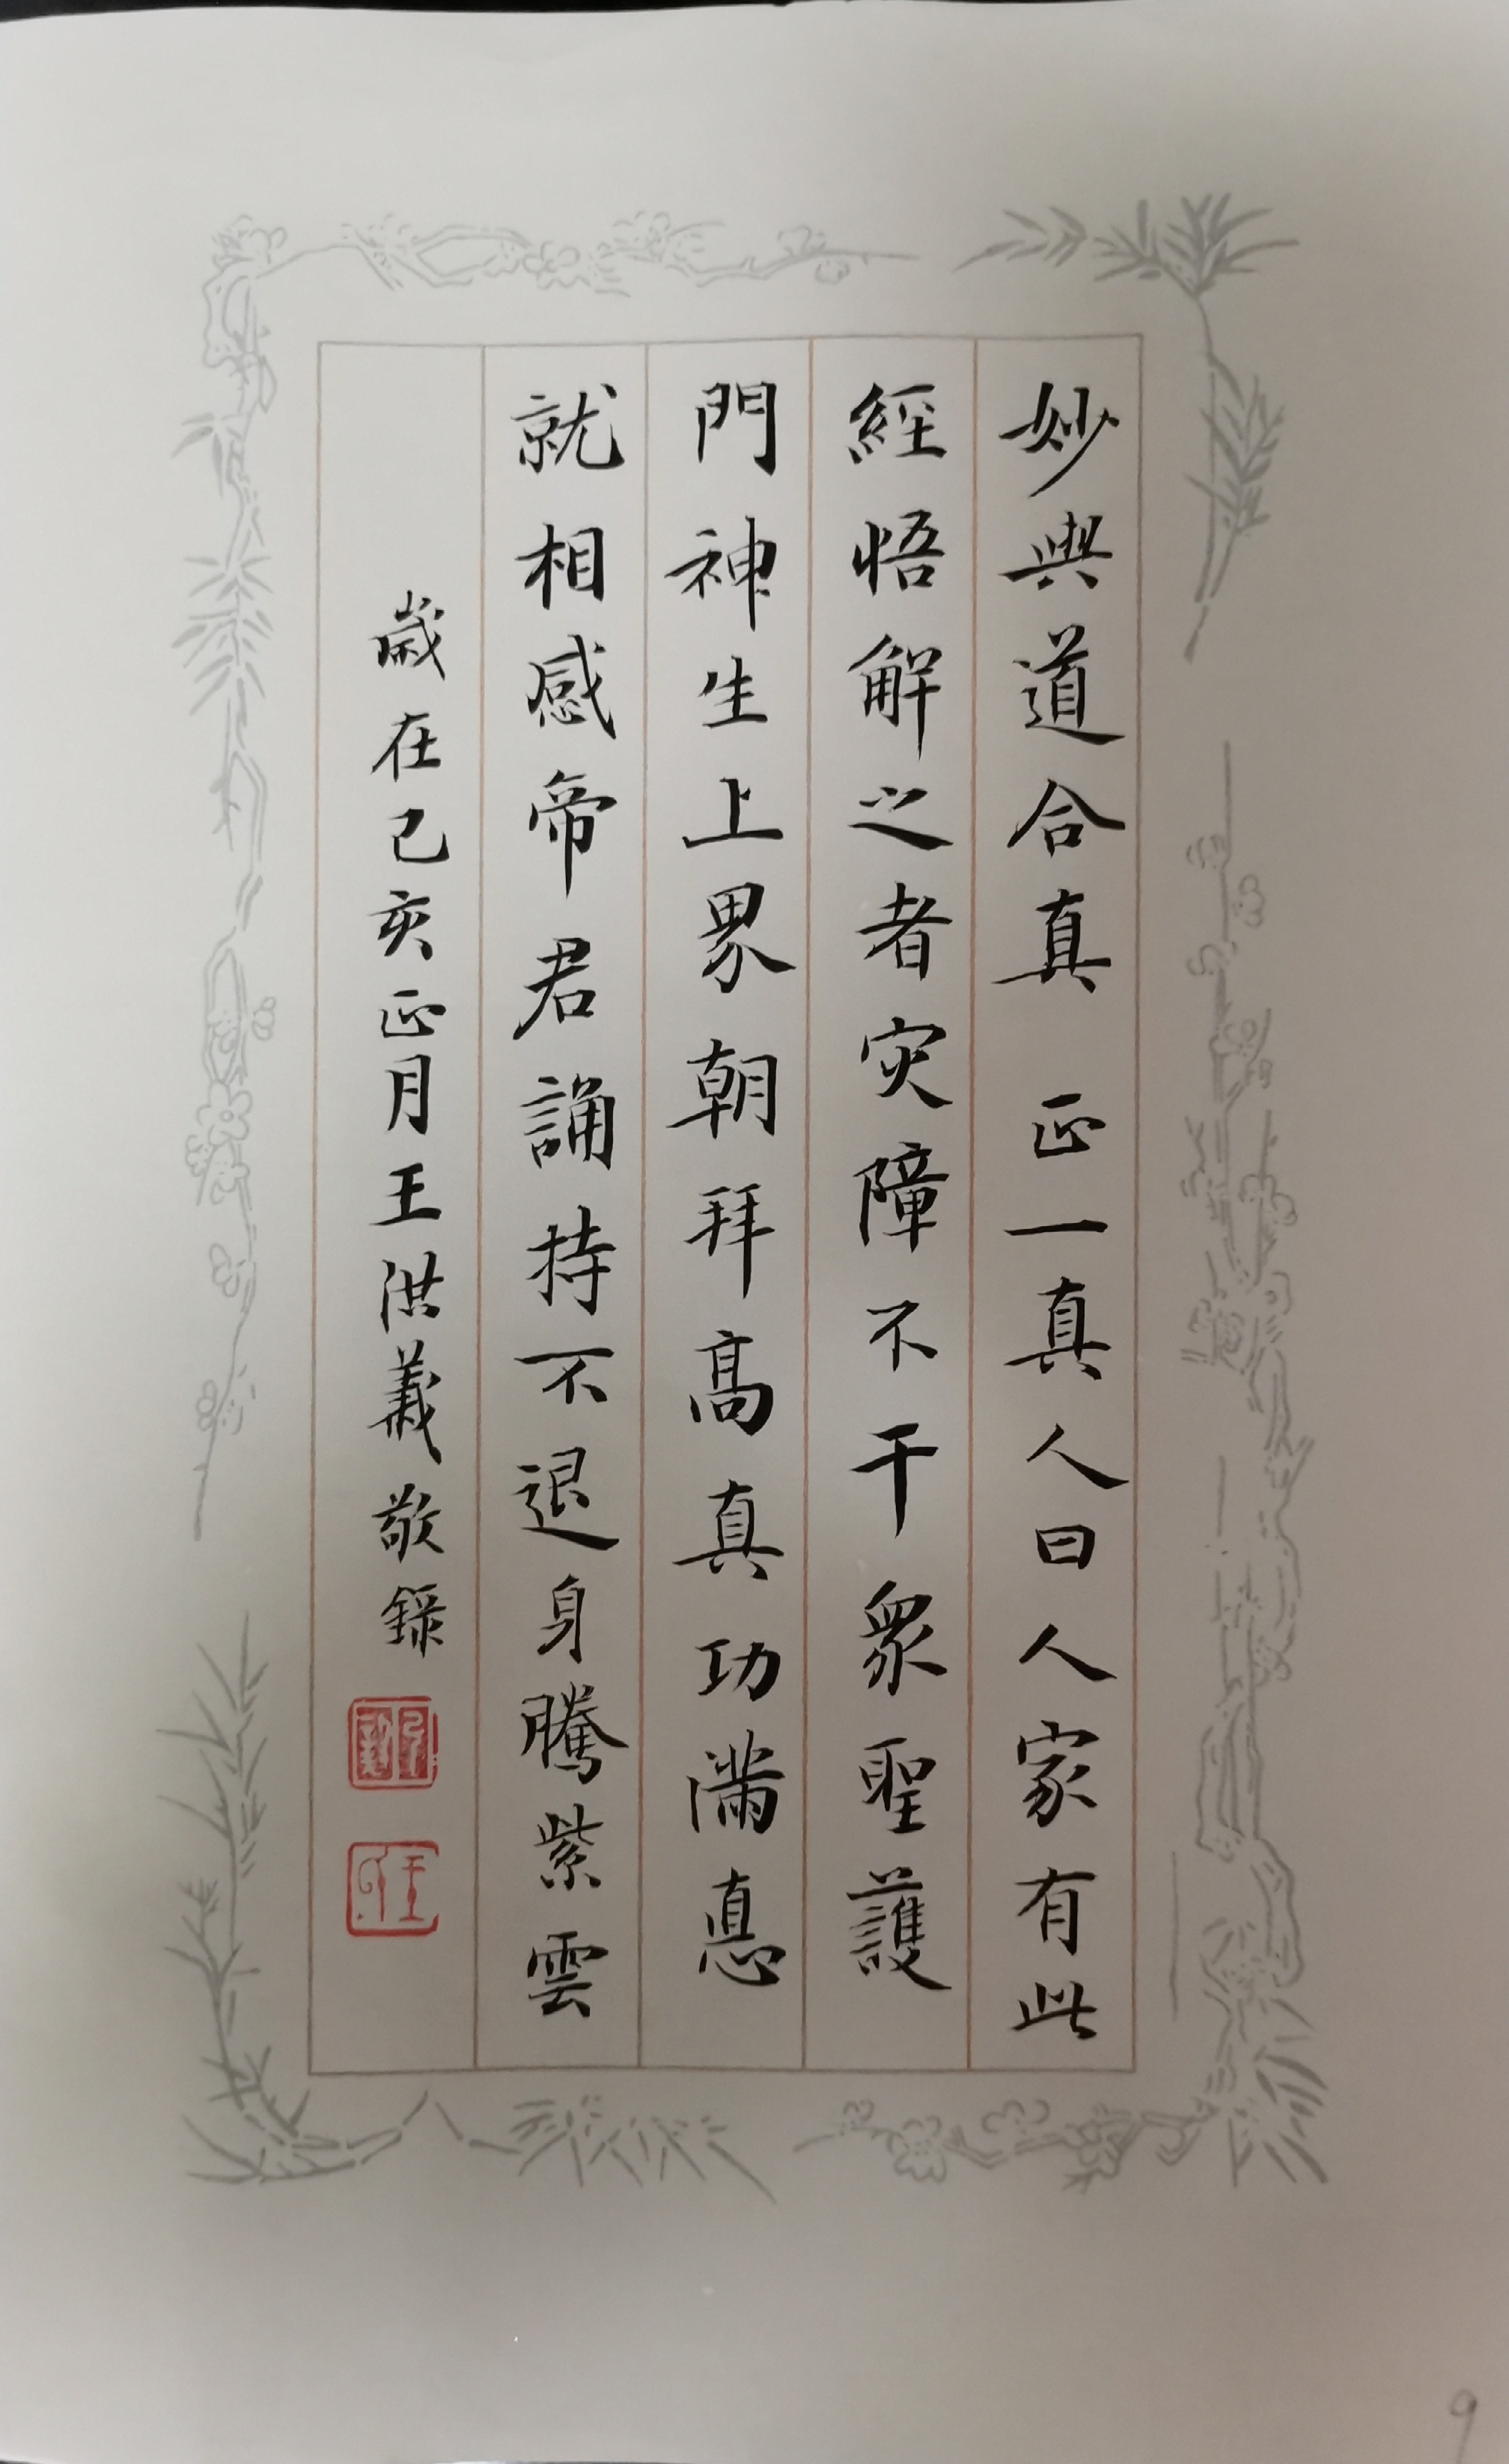 妙與道合真 正一真人曰人家有此
經悟解之者灾障不干衆聖護
門神生上界朝拜髙真功滿悳
就相感帝君誦持不退身騰紫雲
歳在己亥正月王洪義敬録
9